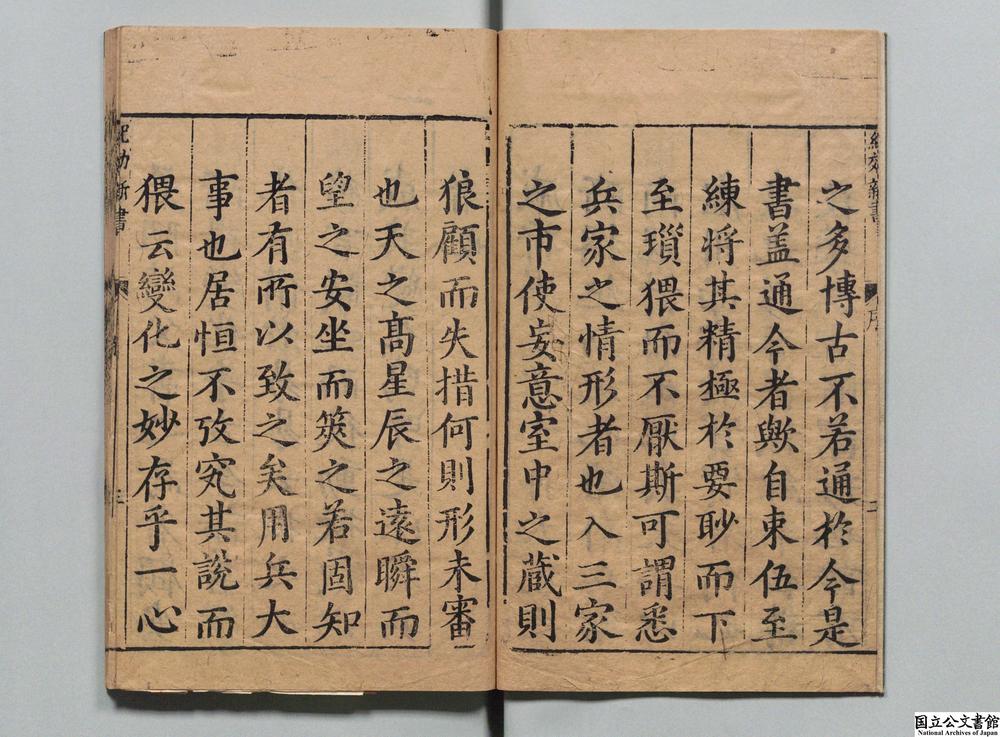 紀効新書
序
二
之多博古不若通於今是
書盖通今者歟自束伍至
練将其精極於要眇而下
至瑣猥而不厭斯可謂悉
兵家之情形者也入三家
之市使妄意室中之蔵則
狼顧而失措何則形未審
也天之髙星辰之遠瞬而
望之安坐而筴之若固知
者有所以致之矣用兵大
事也居恒不攷究其說而
猥云變化之妙存乎一心
紀効新書
三
国立公文書館
National Archives of Japan